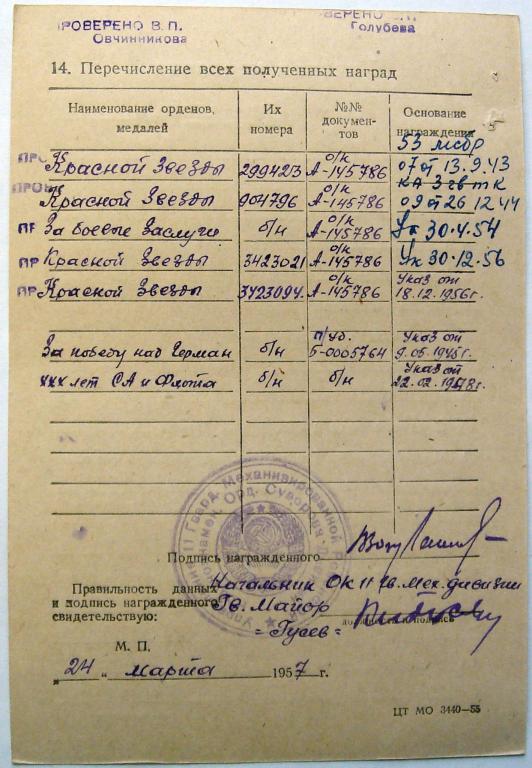 РОВЕРЕНО В.П.
Овчинникова
ВЕРЕНО
Голубева
14. Перечисление всех полученных наград
Наименование орденов, медалей
Их номера
№№ документов
Основание награждения
53 мсбр
Красной Звезды 299423 о/к А-145786 07 от 13.9.43
КА 3 гв тк
Красной Звезды 904796 о/к А-145786 09 от 26 12 44
За боевые Заслуги б/н о/к А-145786 Ук 30.4.54
Красной Звезды 3423021 о/к А-145786 Ук 30.12.56
Красной Звезды 3423094. о/к А-145786 Указ от 18.12.1956г.
За победу над Герман б/н п/уд. Б-0005764 Указ от 9.05.1945г.
ХХХ лет СА и Флота б/н б/н Указ от 22.02.1948г.
Подпись награжденного
Правильность данных и подпись награжденного свидетельствую:
Начальник ОК 11 гв. мех. дивизии
Гв. Майор
= Гусев =
должность и подпись
М. П.
„24" марта 1957 г.
ЦТ МО 3440—55